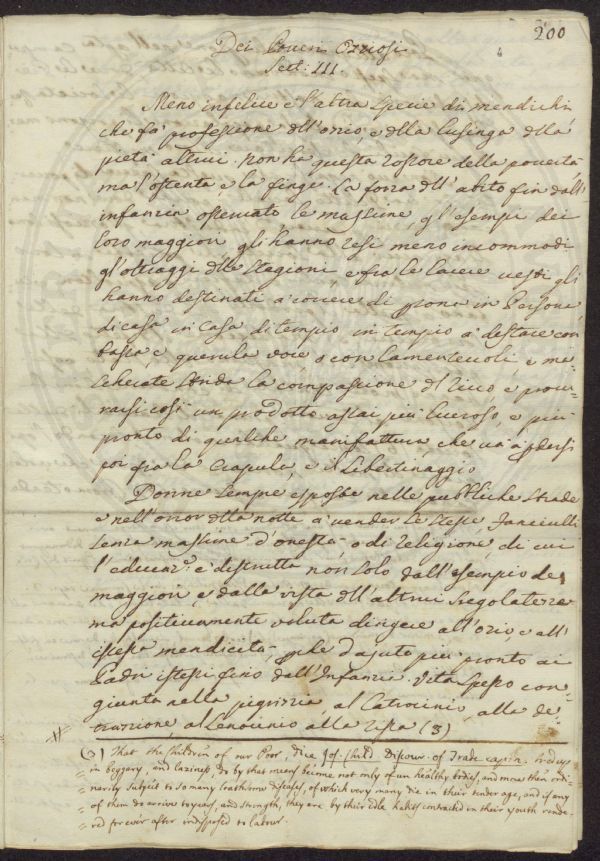 200
Dei Poveri Oziosi
Sect: III
Meno infelice è l'altra specie di mendichi
che fà professione dell'ozio, e della lusinga della
pietà altrui. non ha questa rossore della povertà
ma l'ostenta e la finge. La forza dell' abito fin dall'
infanzia le massime gl'esempi dei
loro maggiori gli hanno resi meno incommodi
gl'oltraggi delle Stagioni, e fra le lacere vesti gli
hanno destinati a correre di
di casa in casa di tempio in tempio a destare con
bassa e querula voce o con lamentevoli, e
strida la compassione del ricco, e procu-
rarsi così un prodotto assai più lucroso, e più
pronto di qualche manifattura, che và a perdersi
poi fra la Crapula, e il Libertinaggio
Donne sempre esposte nelle pubbliche strade
e nell'orror della notte a vender se stesse, Fanciulli
senza massime d'onestà o di religione, di cui
l'educaz.e è distrutta non solo dall'esempio de
maggiori e dalla vista dell'altrui sregolatezze
ma positivamente voluta dirigere all'ozio, e all'
istessa mendicità d'ajuto più pronto ai
Padri istessi fino dall'Infanzia. Vita spesso con-
giunta nella pigrizia, al Latrocinio, alla de-
trazione, al Lenocinio alla (3)
(3) That the Children of our Poor, dice Jos. Child. Discour. of Trade bred up
in beggary, and laziness, do by that means become not only of un healthy bodies, and more then ordi-
narily subject to so many loathsome diseases, of which very many die in their tender age, and if any
of them do arrive to years, and strength, they are by their idle habits contracted in their youth rende-
red for ever after indisposed to labour.